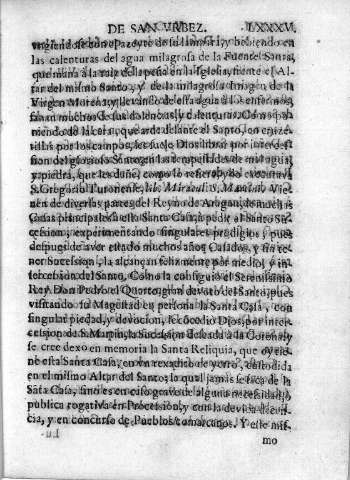 DE SAN VRBEZ. LXXXV.
ungiendose con el azeyte de su lampara, y bebiendo en
las calenturas del agua milagrosa de la Fuente Santa,
que mana à la raiz de la peña en la Iglesia, frente el Al-
tar del mismo Santo, y de la milagrosa Imagen de la
Virgen Morena; y llevando de essa agua à los enfermos,
sanan muchos de sus dolencias, y calenturas. Como
niendo de la cera, que arde delante el Santo, en
las por los campos, les suele Dios librar por interces-
sion del glorioso Santo, en las tempestades de
y piedra, que les dañe, como lo refiere
S. Gregorio Turonense, lib. Miracul. S. Martini. Vie-
nen de diversas partes del Reyno de Aragon, de muchas
Casas principales à esta Santa Casa, à pedir al Santo Su-
cession, experimentando singulares prodigios, pues
despues de aver estado muchos años Casados, y sin te-
ner Sucession, la alcançan felizmente por medio, y in-
tercession del Santo. Como la consiguiò el Serenissimo
Rey Don Pedro el Quarto, gran devoto del Santo, pues
visitando su Magestad en persona la Santa Casa, con
singular piedad, y devocion, le cõcediò Dios, por inter-
cession de S. Martin, la Sucession deseada à la Corona, y
se cree dexò en memoria la Santa Reliquia, que oy tie-
ne esta Santa Casa, en vn rexadico de yerro, custodida
en el mismo Altar del Santo; la qual jamàs se saca de la
Sãta Casa, sino es en caso grave de alguna necessidad,
publica rogativa en Procession, y con la devida
cia, y en concurso de Pueblos comarcanos. Y este mis-
mo